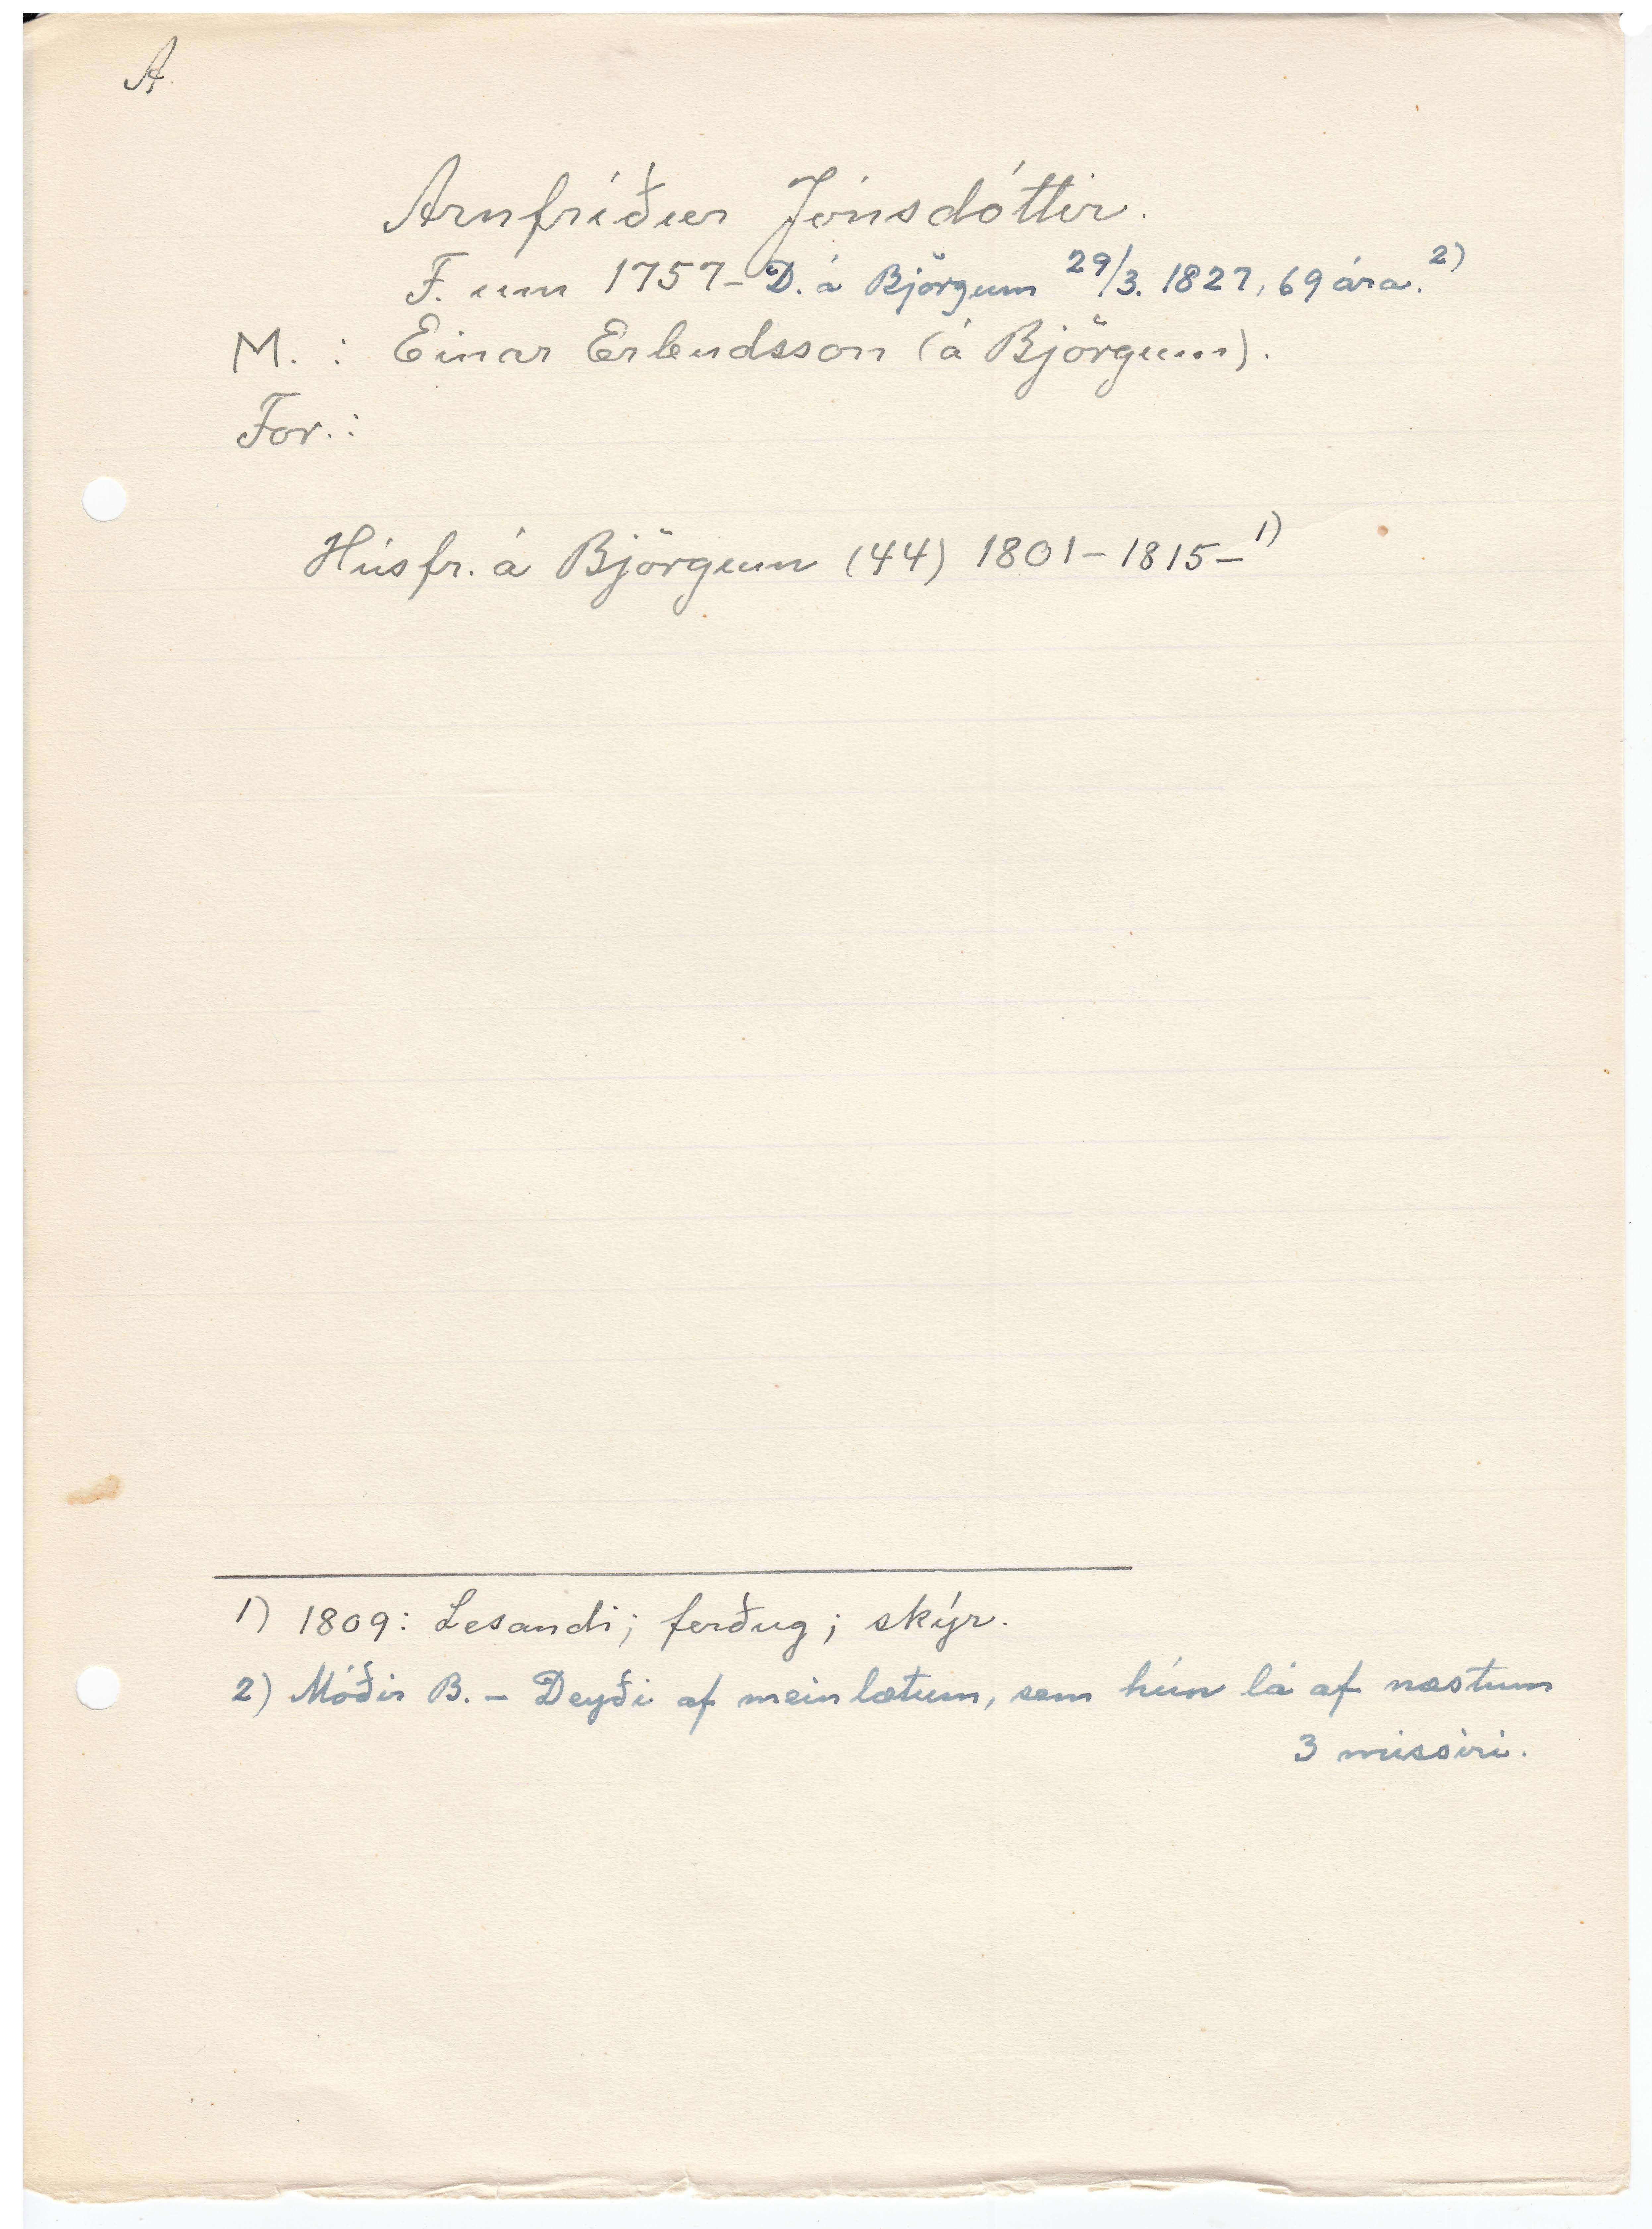 A.
Arnfríður Jónsdóttir.
F. um 1757 – D. á Björgum 29/3. 1827, 69 ára. 2)
M. : Einar Erlendsson (á Björgum).
For. :
Húsfr. á Björgum (44) 1801 – 1815 – 1)
1) 1809: Lesandi; ferðug; skýr.
2) Móðir B. – Deyði af meinlætum, sem hún lá af næstum
3 missiri.